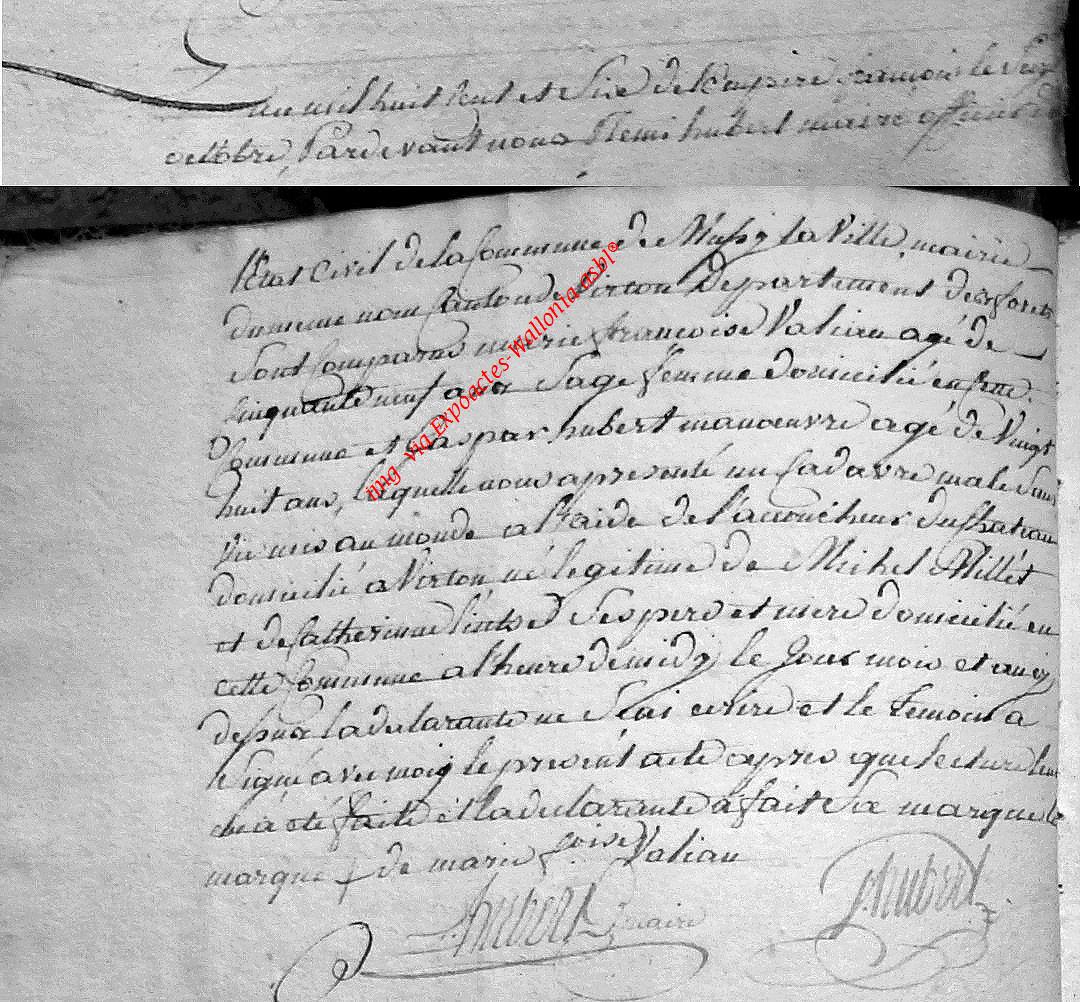 an mil huit cent et Sixe de l'empire francois le Seize
octobre, Pardevant nous Remi hubert maire officier de
l'Etat Civil de la Commune de Mussy la Ville, mairie
du meme nom Canton de Virton Departement des forets
Sont Comparus marie francoise Valiau agé de
Cinquante neuf ans Sage femme domicilié en
Commune et Gaspar hubert manoeuvre agé de Vingt
huit ans, laquelle nous apresenté un Cadavre male Sans
Vie mis au monde a l'aide de l'accoucheur duchateau
domicilié a Virton né legitime de Michel Millet
et de Catherinne Ses pere et mere domicilié en
cette Commune a l'heure de midy le Jour mois et an cy
desus la declarante ne Scai ecrire et le temoins a
Signé avec moiy le present acte apres que lecture leur
en a été faite et la declarante a fait Sa marque
marque + de marie foise Valiau
hubert maire
hubert
img via Expoactes-Wallonia asbl®